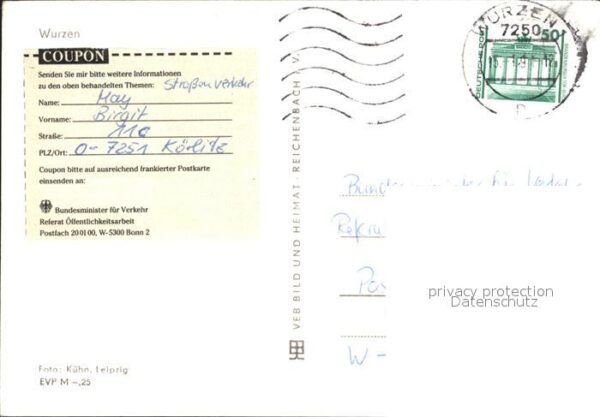 Wurzen
COUPON
Senden Sie mir bitte weitere Informationen
zu den oben behandelten Themen: Straßenverkehr
Name: May
Vorname: Birgit
Straße: 11c
PLZ/Ort: O-7251 Körlitz
Coupon bitte auf ausreichend frankierter Postkarte
einsenden an:
Bundesminister für Verkehr
Referat Öffentlichkeitsarbeit
Postfach 20 01 00, W-5300 Bonn 2
Foto: Kühn, Leipzig
EVP M -,25
VEB BILD UND HEIMAT · REICHENBACH I. V.
WURZEN
7250
50
DEUTSCHE POST
Bundesminister für
W -
privacy protection
Datenschutz